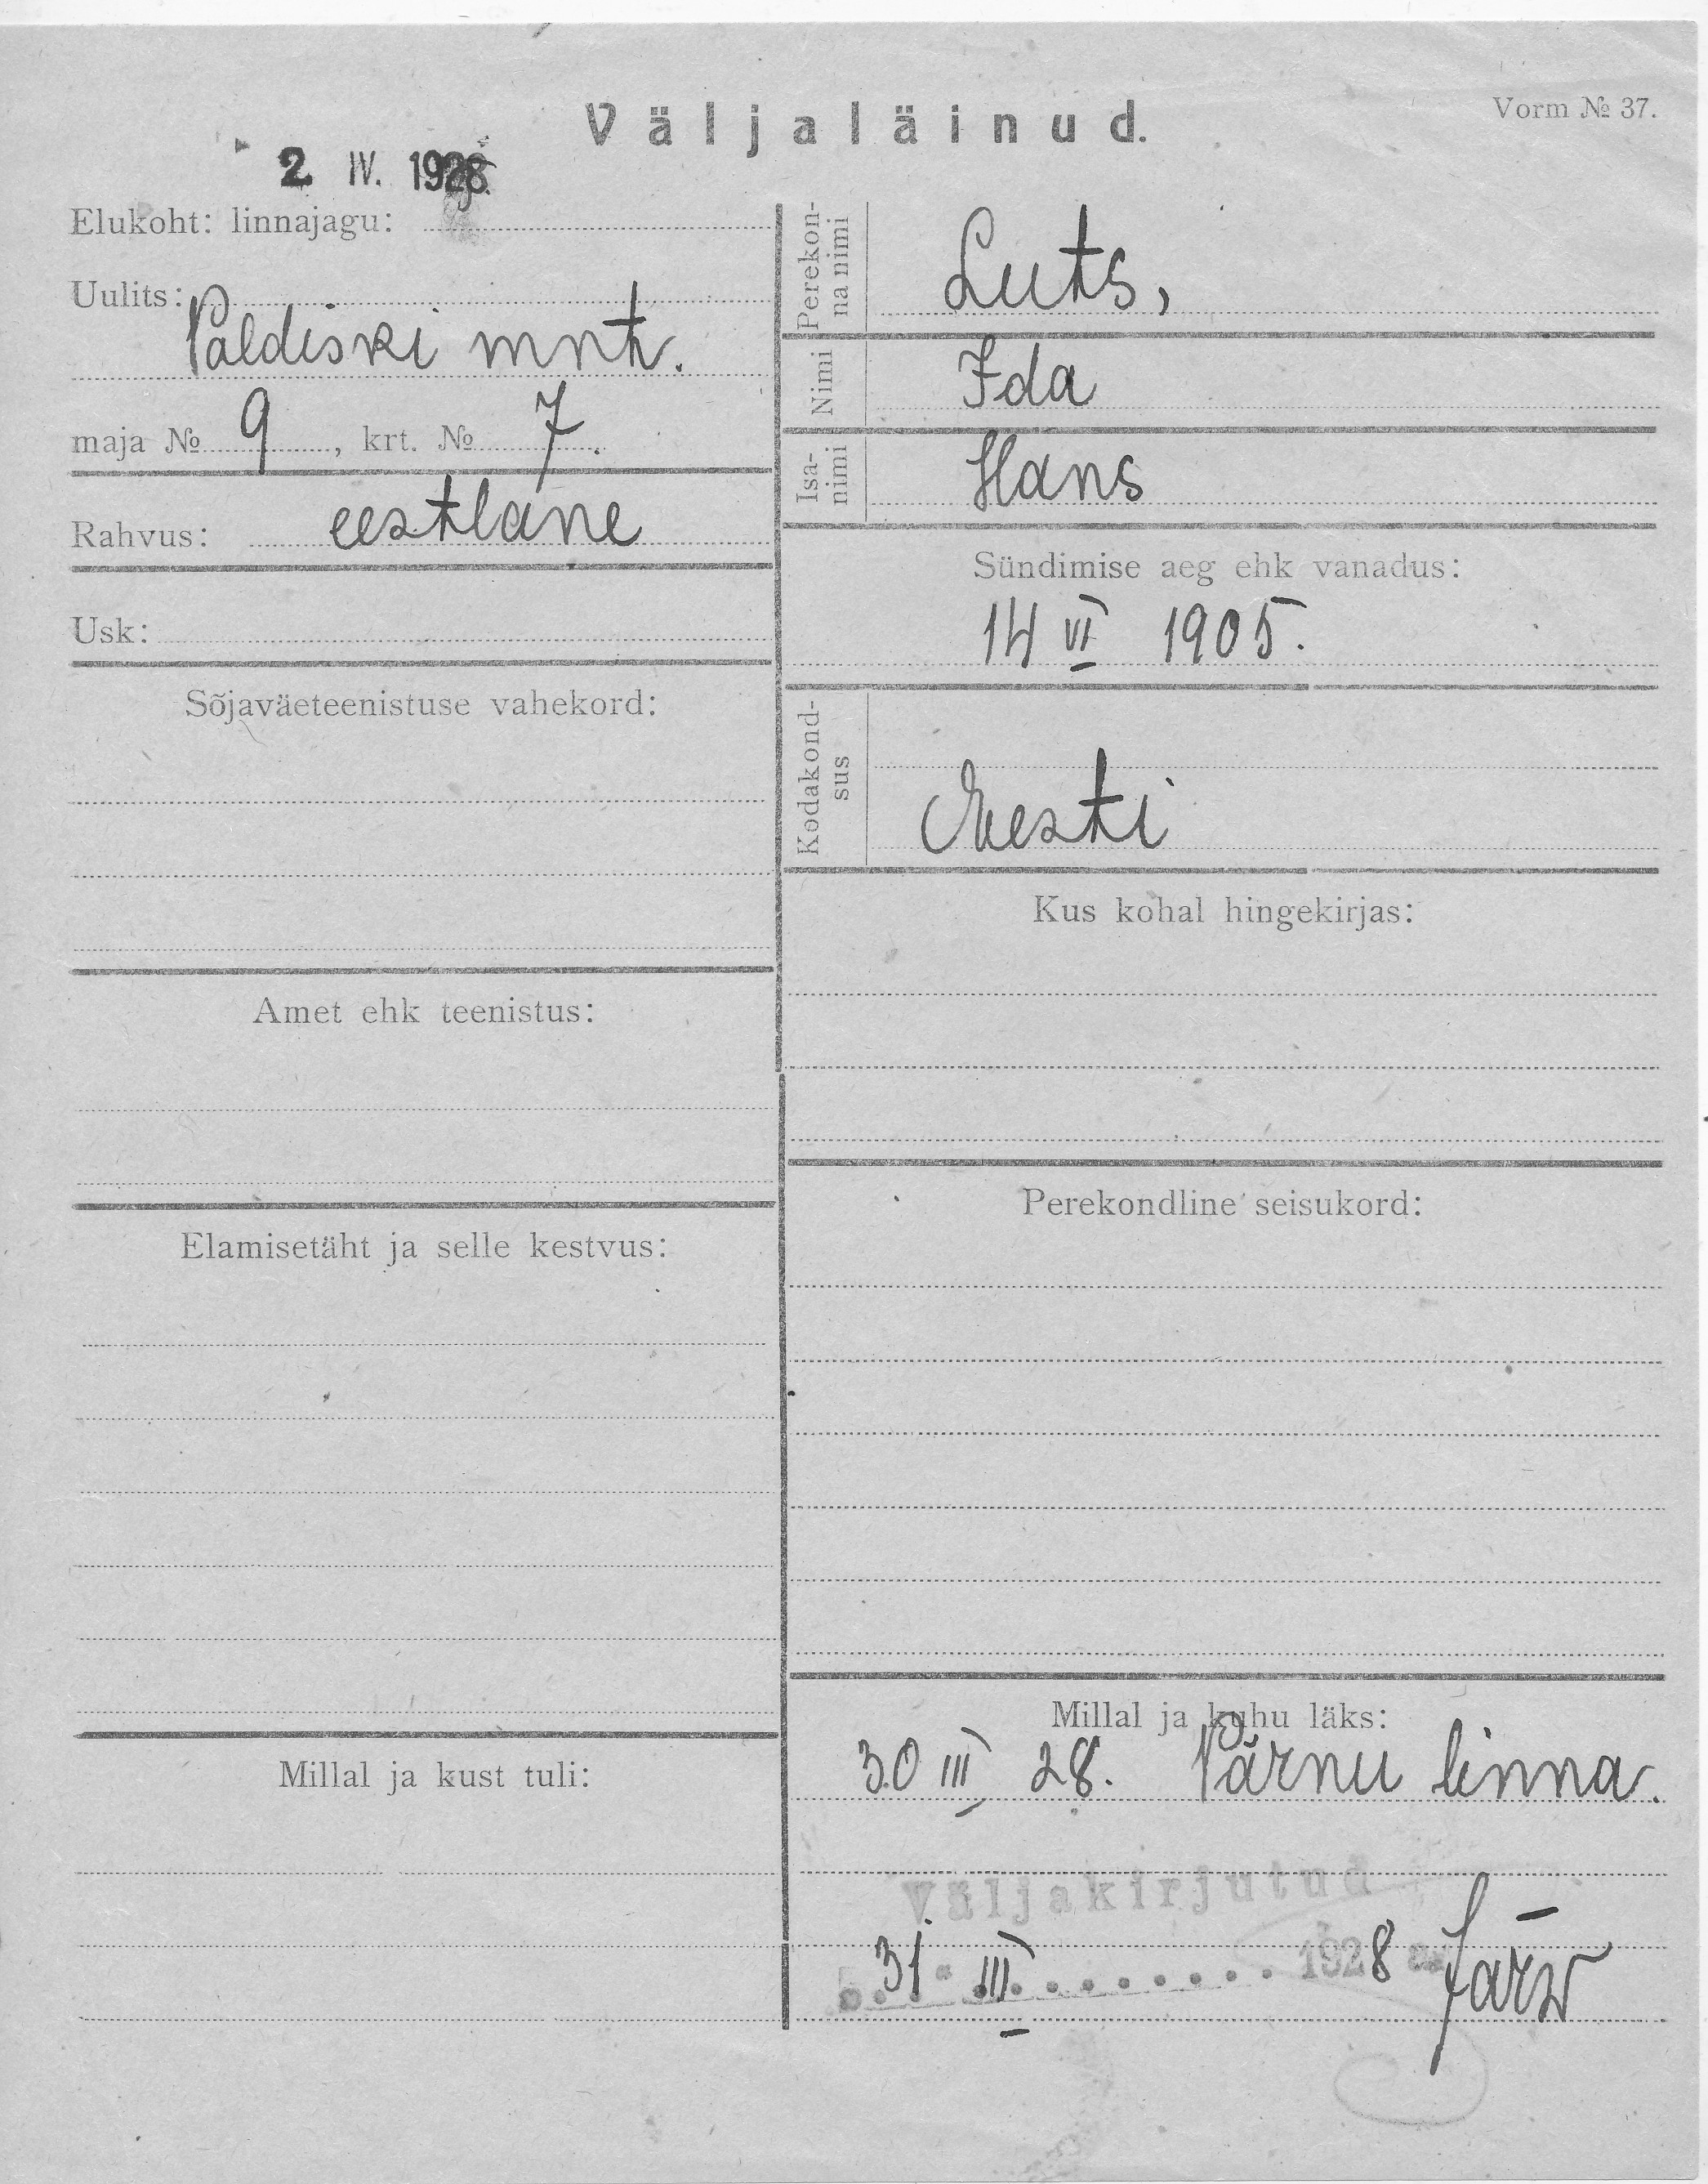 Väljaläinud.
Vorm № 37.
2. IV. 1928.
Elukoht: linnajagu:
Uulits:
Paldiski mnt.
maja № 9, krt. № 7.
Rahvus: eestlane
Usk:
Sõjaväeteenistuse vahekord:
Amet ehk teenistus:
Elamisetäht ja selle kestvus:
Millal ja kust tuli:
Perekon-
na nimi
Luts,
Nimi
Ida
Isa-
nimi
Hans
Sündimise aeg ehk vanadus:
14 VI 1905.
Kodakond-
sus
Eesti
Kus kohal hingekirjas:
Perekondline seisukord:
Millal ja kuhu läks:
30 III 28. Pärnu linna.
Väljakirjutud
31 III 1928 a.
Järv